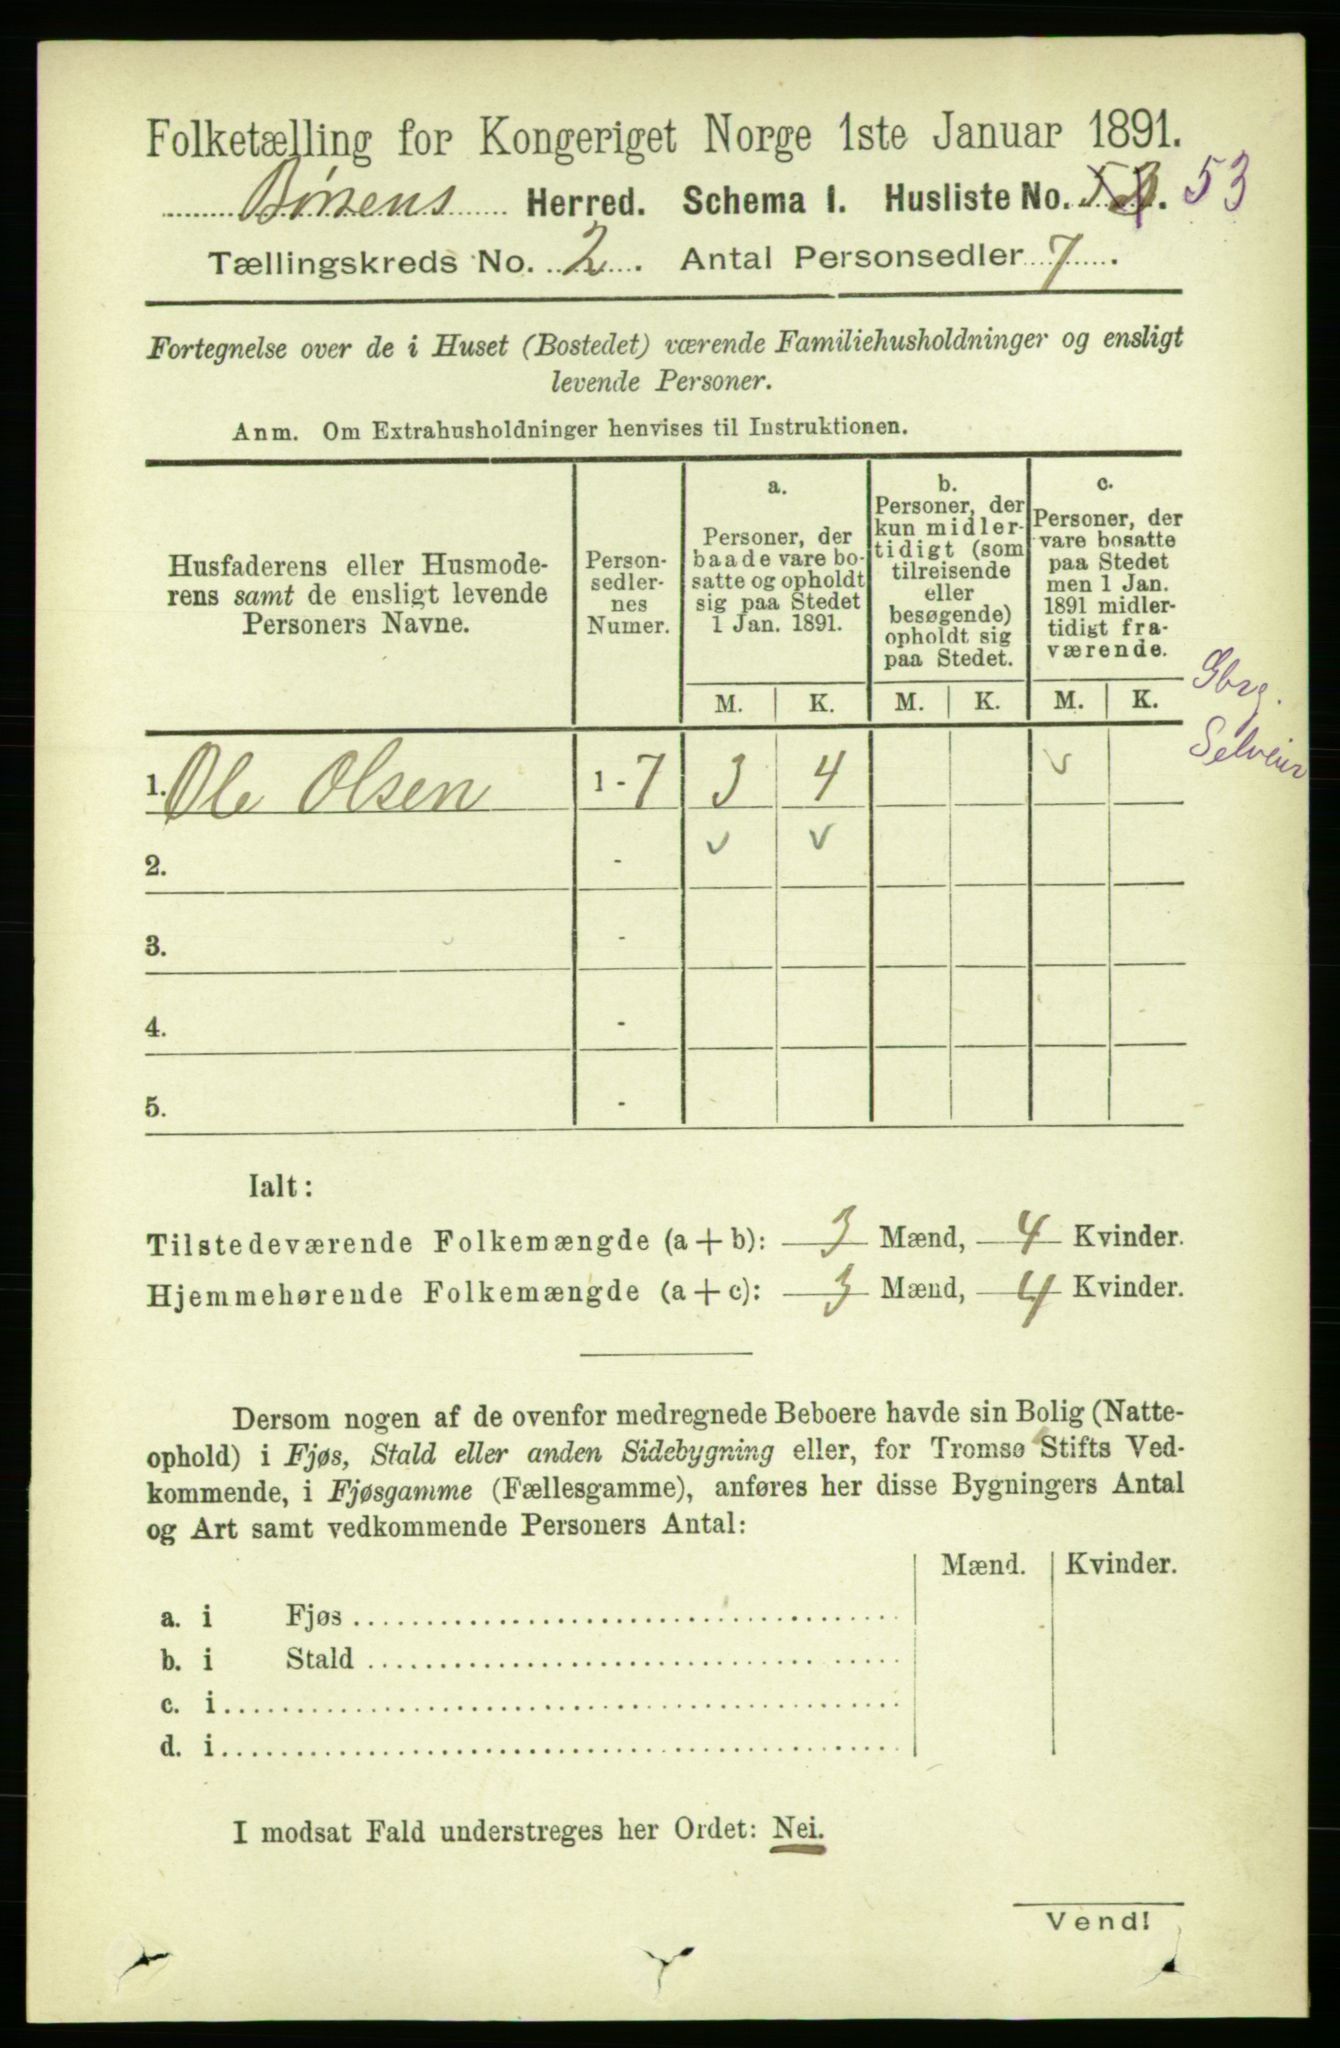 Folketælling for Kongeriget Norge 1ste Januar 1891.
Børsens Herred. Schema 1. Husliste No. 53. 53
Tællingskreds No. 2. Antal Personsedler 7.
Fortegnelse over de i Huset (Bostedet) værende Familiehusholdninger og ensligt
levende Personer.
Anm. Om Extrahusholdninger henvises til Instruktionen.
Husfaderens eller Husmode-
rens samt de ensligt levende
Personers Navne.
Person-
sedler-
nes
Numer.
a.
Personer, der
baade vare bo-
satte og opholdt
sig paa Stedet
1 Jan. 1891.
b.
Personer, der
kun midler-
tidigt (som
tilreisende
eller
besøgende)
opholdt sig
paa Stedet.
c.
Personer, der
vare bosatte
paa Stedet
men 1 Jan.
1891 midler-
tidigt fra-
værende.
M. K. M. K. M. K.
Gbrg.
Selveier
1. Ole Olsen 1 - 7 3 4 v
2. - v v
3. -
4. -
5. -
Ialt:
Tilstedeværende Folkemængde (a + b): 3 Mænd, 4 Kvinder.
Hjemmehørende Folkemængde (a + c): 3 Mænd, 4 Kvinder.
Dersom nogen af de ovenfor medregnede Beboere havde sin Bolig (Natte-
ophold) i Fjøs, Stald eller anden Sidebygning eller, for Tromsø Stifts Ved-
kommende, i Fjøsgamme (Fællesgamme), anføres her disse Bygningers Antal
og Art samt vedkommende Personers Antal:
Mænd. Kvinder.
a. i Fjøs
b. i Stald
c. i
d. i
I modsat Fald understreges her Ordet: Nei.
Vend!